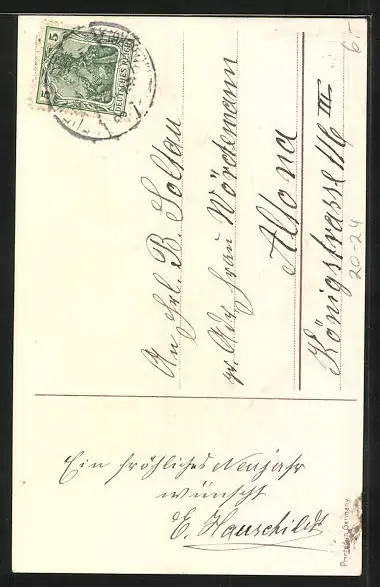 5 5
DEUTSCHES REICH
An Frl. B. Soltau
pr. Adr. Frau Wördemann
Altona
Königstrasse 116 III
Ein fröhliches Neujahr
wünscht
E. Hauschildt
Printed in Germany
20-24
6.-